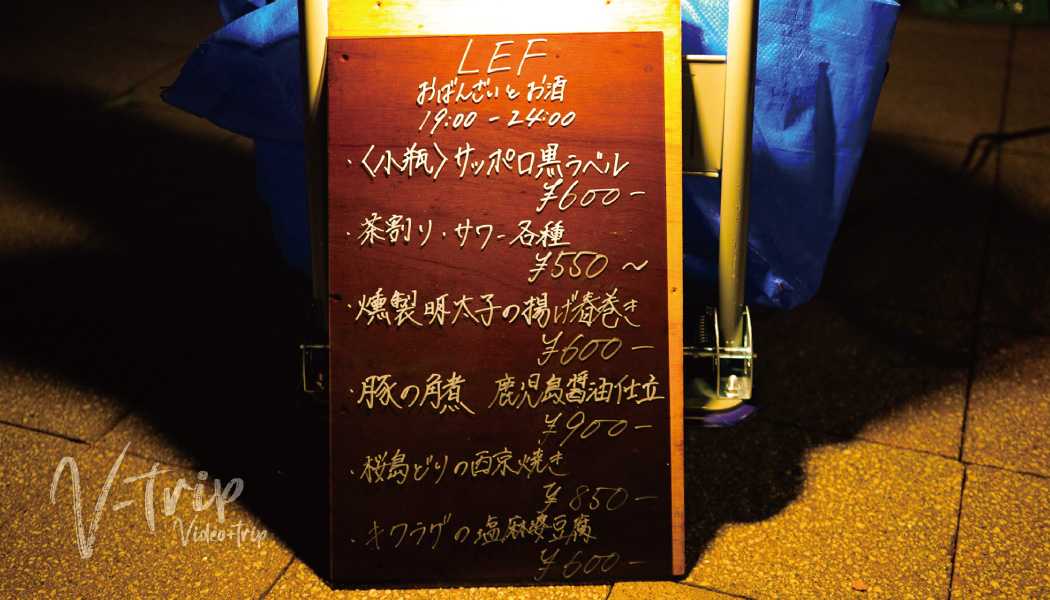 LEF
おばんざいとお酒
19:00 - 24:00
・〈小瓶〉サッポロ黒ラベル
¥600-
・茶割り・サワー各種
¥550~
・燻製明太子の揚げ春巻き
¥600-
・豚の角煮 鹿児島醤油仕立
¥900-
・桜島どりの西京焼き
¥850-
・キクラゲの塩麻婆豆腐
¥600-
V-trip
Video+trip